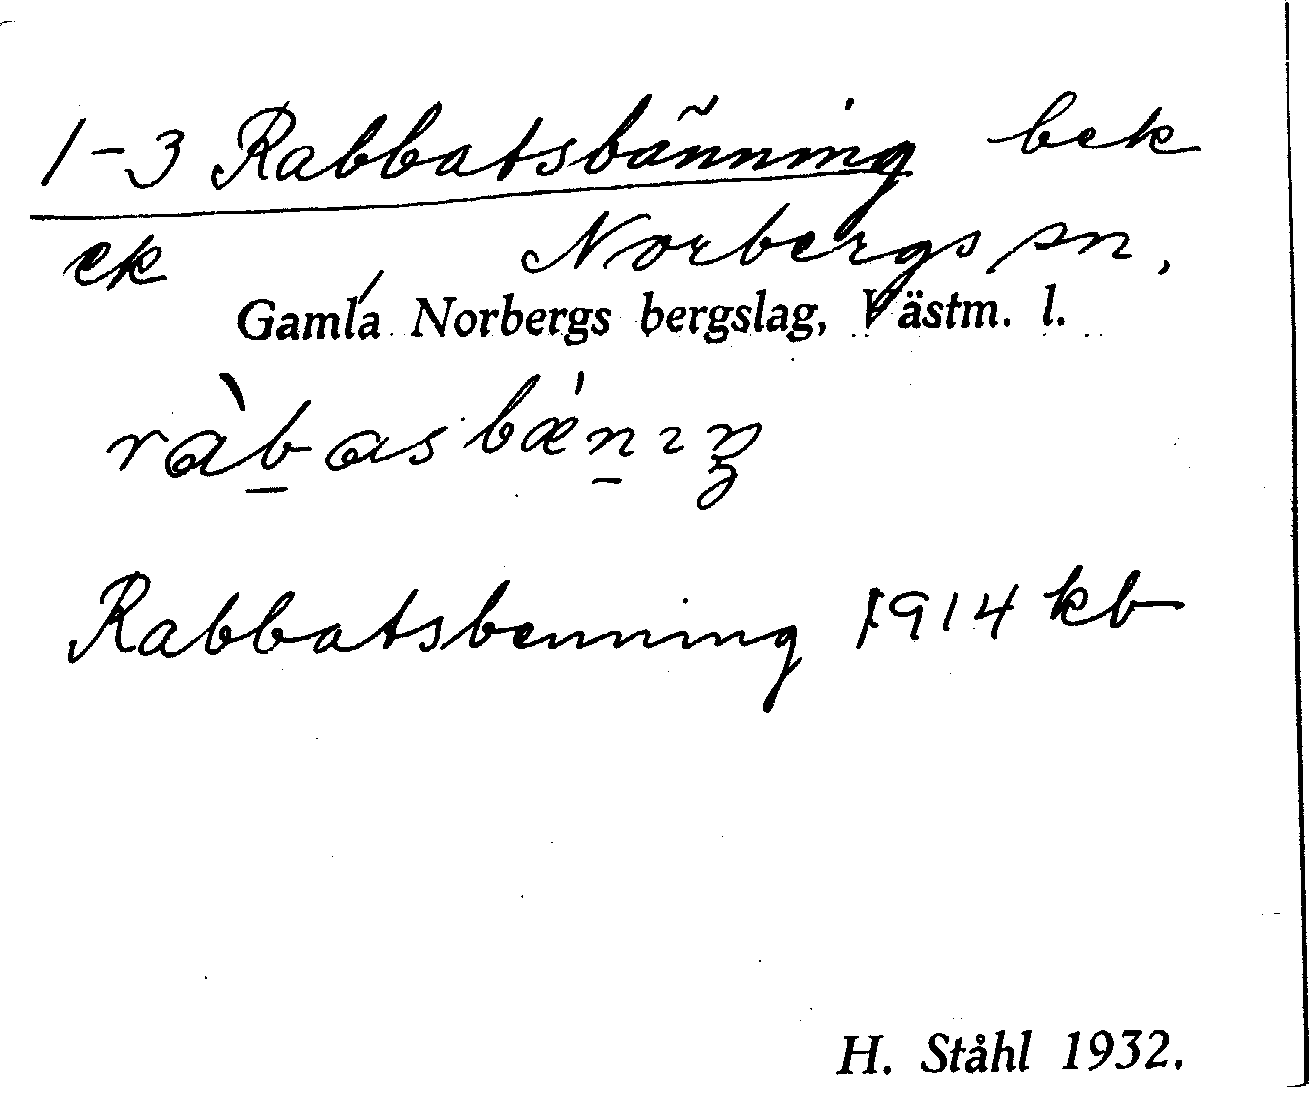 1-3 Rabbatsbänning bek
ek Norbergs sn,
Gamla Norbergs bergslag, Västm. l.
ràb̠asbǽn̠ıŋ
Rabbatsbenning 1914 kb
H. Ståhl 1932.